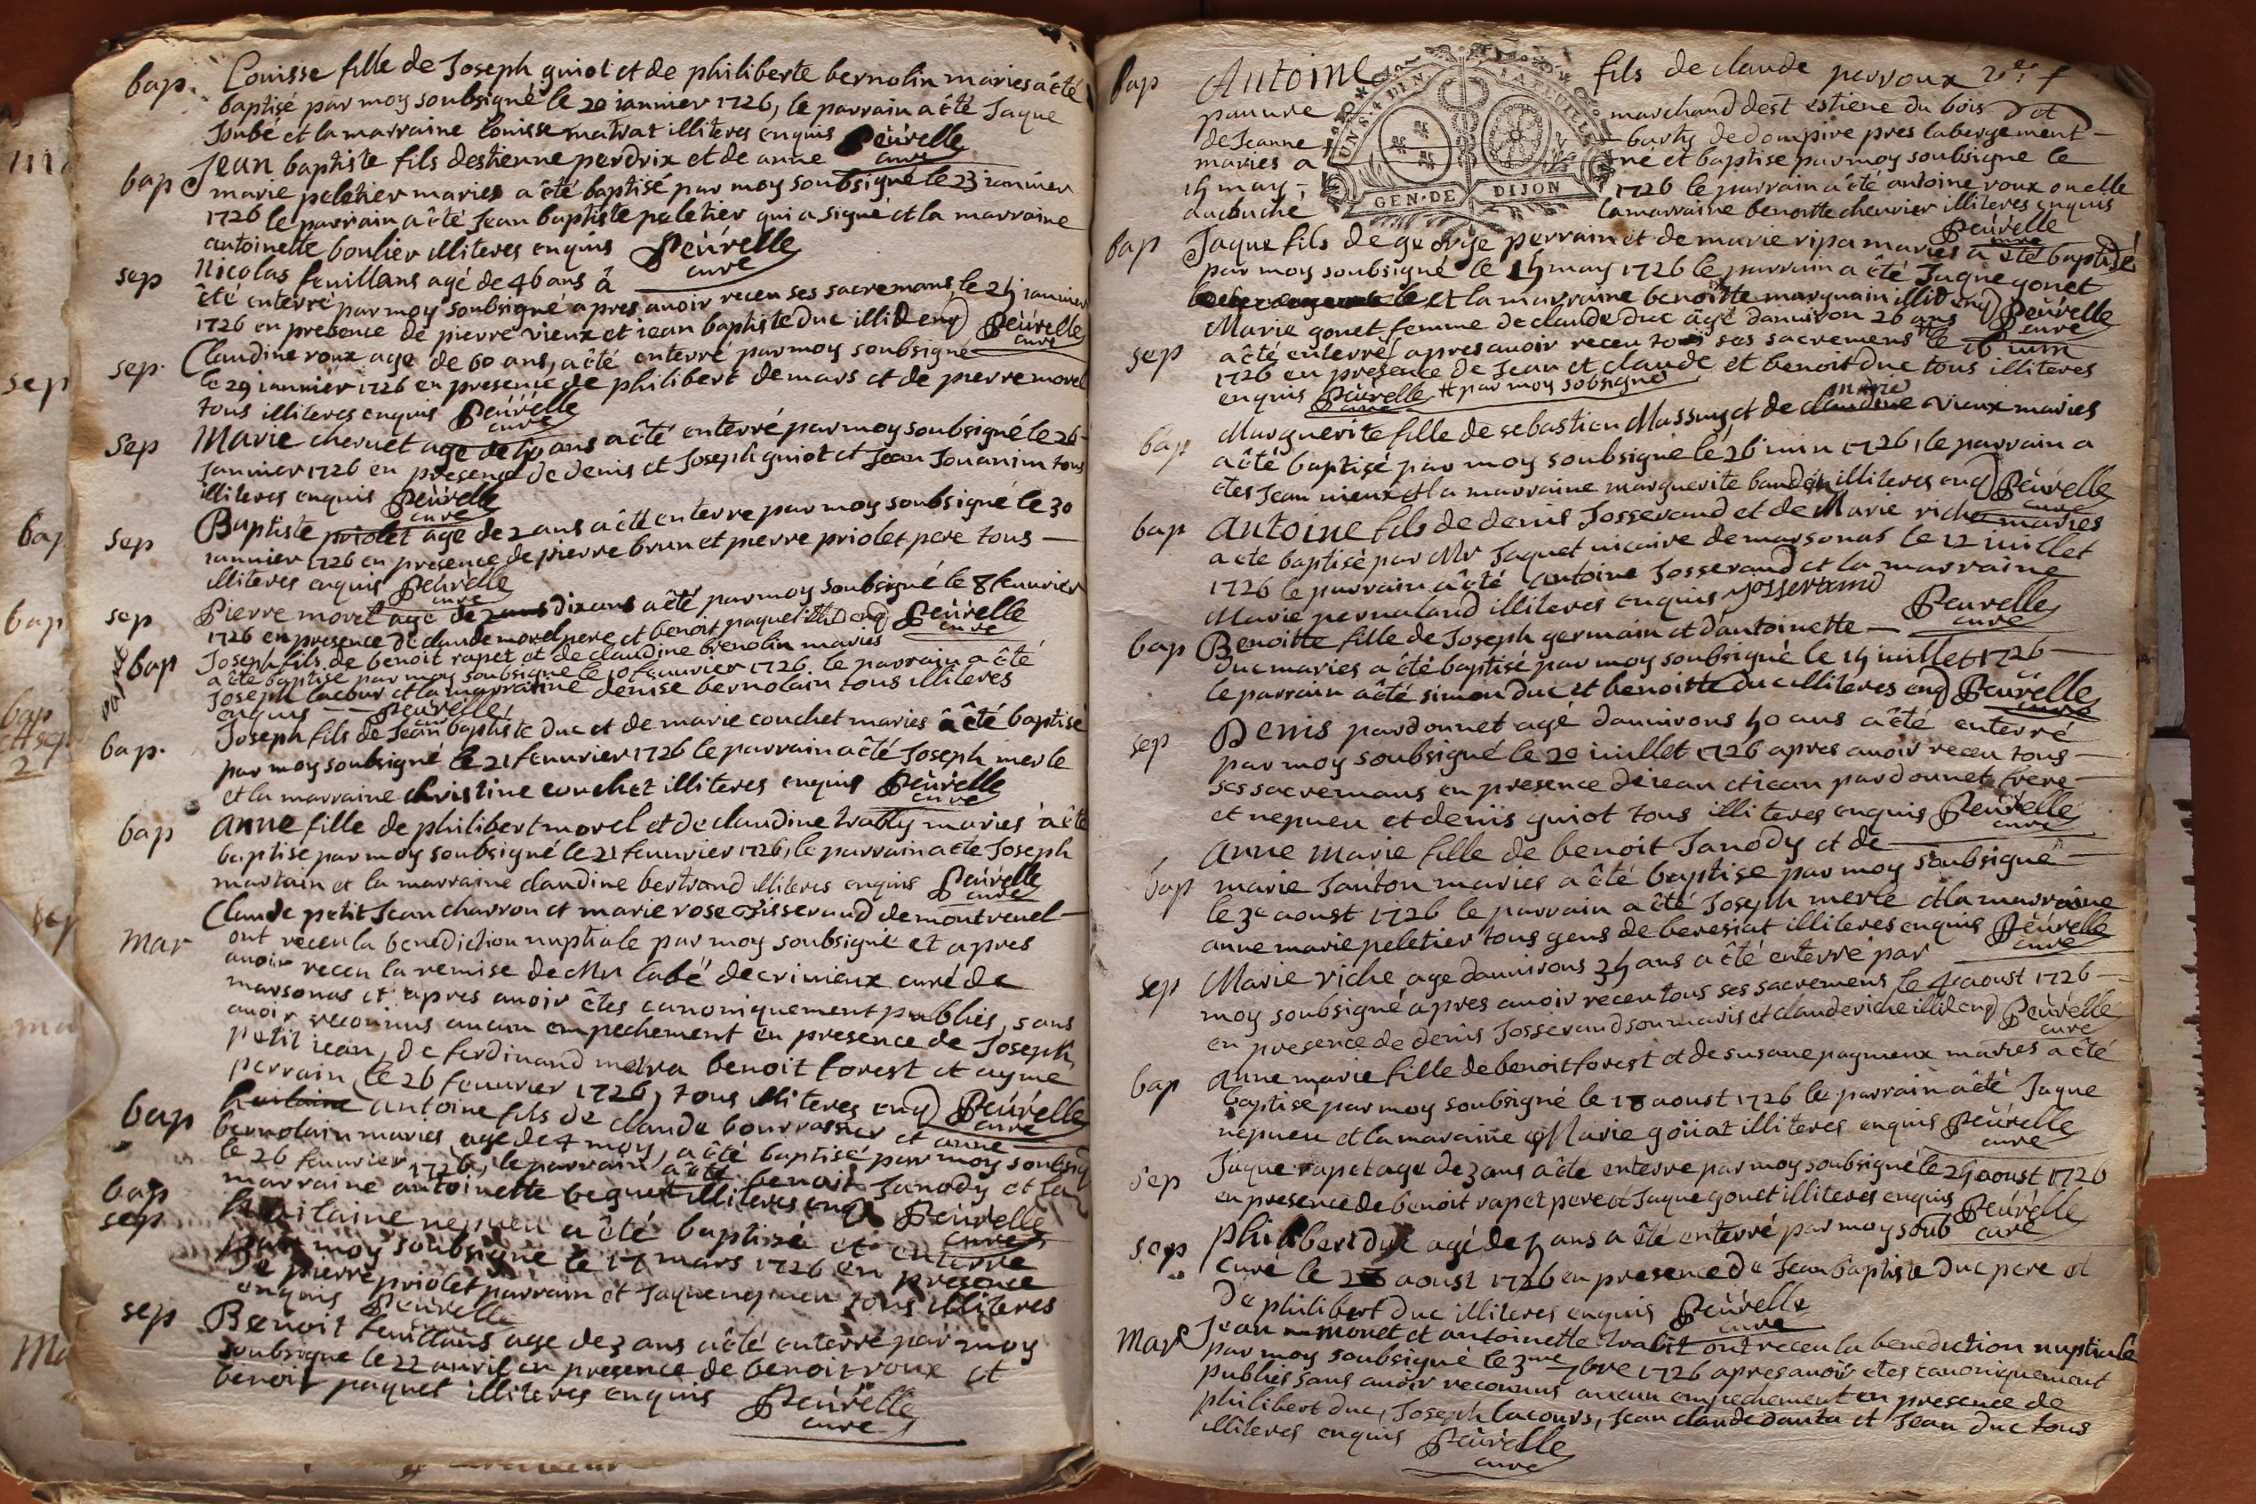 bap. Louisse fille de Joseph guiot et de philiberte bernolin mariés a été
baptisé par moy soubsigné le 20 ianvier 1726, le parrain a êté Jaque
Jubé et la marraine louisse matrat illiteres enquis Peurelle
curé
bap Jean baptiste fils destienne perdrix et de anne
marie peletier mariés a êté baptisé par moy soubsigné le 23 ianvier
1726 le parrain a êté Jean baptiste peletier qui a signé et la marraine
antoinette boulier illiteres enquis Peurelle
curé
sep Nicolas feuillans agé de 46 ans â
êté enterré par moy soubsigné apres avoir receu ses sacremans le 25 ianvier
1726 en presence de pierre vieux et iean baptiste duc illid enq Peurelle
curé
sep. Claudine roux age de 60 ans, a êté enterré par moy soubsigné
le 29 iannier 1726 en presence de philibert demars et de pierre morel
tous illiteres enquis Peurelle
curé
sep Marie chernet age de 50 ans a êté enterré par moy soubsigné le 26
Janvier 1726 en presence de denis et Joseph guiot et Jean Jouanin tous
illiteres enquis Peurelle
curé
sep Baptiste priolet age de 2 ans a êté enterré par moy soubsigné le 30
iannier 1726 en presence de pierre brun et pierre priolet pere tous
illiteres enquis Peurelle
curé
sep Pierre morel age de 2 ans dix ans a êté par moy soubsigné le 8 feuurier
1726 en presence de claude morel pere et benoit paquet illid enq Peurelle
curé
bap Joseph fils de benoit rapet et de claudine brenolin mariés
a êté baptisé par moy soubsigné le 10 feuurier 1726 le parrain a êté
Joseph lacour et la marraine denise bernolain tous illiteres
enquis Peurelle
curé
bap. Joseph fils de Jean baptiste duc et de marie couchet mariés â êté baptisé
par moy soubsigné le 21 feuurier 1726 le parrain a êté Joseph merle
et la marraine christine couchet illiteres enquis Peurelle
curé
bap anne fille de philibert morel et de claudine trably mariés a êté
baptisé par moy soubsigné le 21 feuurier 1726, le parrain a êté Joseph
martain et la marraine claudine bertrand illiteres enquis Peurelle
curé
Claude petit Jean charron et marie rose Tisserand de montreuel
mar ont receu la benediction nuptiale par moy soubsigné et apres
avoir receu la remise de Mr labé de crinieux curé de
marsonas et apres avoir êtes canoniquement publies, sans
avoir reconnus aucun empechement en presence de Joseph
petit iean, de ferdinand metra benoit forest et aymé
perrain, le 26 feuurier 1726, tous illiteres enq Peurelle
curé
bap antoine fils de claude bourrassier et anne
bernolain mariés age de 4 moys, a êté baptisé par moy soubsig
le 26 feuurier 1726, le parrain a êté benoit Janody et la
marraine antoinette beguet illiteres enq Peurelle
curé
bap
sep huilaine nepueu a êté baptisé et enterré
par moy soubsigné le 17 mars 1726 en presence
de pierre priolet parrain et Jaque nepueu tous illiteres
enquis Peurelle
curé
sep Benoit feuillans age de 3 ans a êté enterré par moy
soubsigné le 22 auril en presence de benoit roux et
benoit paquet illiteres enquis Peurelle
curé
bap Antoine fils de claude perroux
pauure marchand dest estiene du bois et
de Jeanne barby de dompire pres labergement
mariés a né et baptisé par moy soubsigné le
15 may 1726 le parrain a êté antoine roux ou elle
ducbuché la marraine benoitte cheurier illiteres enquis
Peurelle
curé
UN S 4 DEN LA FEUILLE
GEN·DE DIJON
bap Jaque fils de george perrain et de marie ripa mariés a êté baptisé
par moy soubsigné le 15 may 1726 le parrain a êté Jaque gonet
et la marraine benoitte marguain illid enq Peurelle
curé
sep Marie gonet femme de claude duc âgé danviron 26 ans
a êté enterré apres avoir receu tous ses sacremens # le 16 iuin
1726 en presence de Jean et claude et benoit duc tous illiteres
enquis Peurelle # par moy sobsigné
curé
marie
bap Marguerite fille de sebastien Massuy et de claudine vieux mariés
a êté baptisé par moy soubsigné le 26 iuin 1726, le parrain a
êtes Jean nieux et la marraine marguerite baudin illiteres enq Peurelle
curé
bap Antoine fils de denis Josserand et de Marie riche mariés
a êté baptisé par Mr Jaquet uicaire de marsonas le 12 iuillet
1726 le parrain a êté antoine Josserand et la marraine
Marie pernaland illiteres enquis Josserand Peurelle
curé
bap Benoitte fille de Joseph germain et dantoinette
duc mariés a êté baptisé par moy soubsigné le 15 iuillet 1726
le parrain a êté simon duc et benoitte duc illiteres enq Peurelle
curé
sep Denis pardonnet agé danvirons 50 ans a êté enterré
par moy soubsigné le 20 iuillet 1726 apres auoir receu tous
ses sacremans en presence de iean et iean pardonnet frere
et nepueu et denis guiot tous illiteres enquis Peurelle
curé
Anne Marie fille de benoit Janody et de
bap marie Janton mariés a êté baptisé par moy soubsigné
le 3e aoust 1726 le parrain a êté Joseph merle et la marraine
anne marie peletier tous gens de beresiat illiteres enquis Peurelle
curé
sep Marie riche age danvirons 35 ans a êté enterré par
moy soubsigné apres avoir receu tous ses sacremens le 4e aoust 1726
en presence de denis Josserand son maris et claude riche illid enq Peurelle
curé
bap Anne marie fille de benoit forest et de susane pagneux mariés a êté
baptisé par moy soubsigné le 18 aoust 1726 le parrain a êté Jaque
nepueu et la maraine Marie goüat illiteres enquis Peurelle
curé
sep Jaque rapet age de 3 ans a êté enterré par moy soubsigné le 25 aoust 1726
en presence de benoit rapet pere et Jaque gonet illiteres enquis Peurelle
curé
sep philibert duc agé de 5 ans a êté enterré par moy soub
curé le aoust 1726 en presence de Jean baptiste duc pere et
de philibert duc illiteres enquis Peurelle
curé
Mar Jean monet et antoinette trablit ont receu la benediction nuptiale
par moy soubsigné le 3me 7bre 1726 apres avoir êtes canoniquement
publiés sans avoir reconnus aucun empechement en presence de
philibert duc, Joseph lacours, Jean claude danta et Jean duc tous
illiteres enquis Peurelle
curé